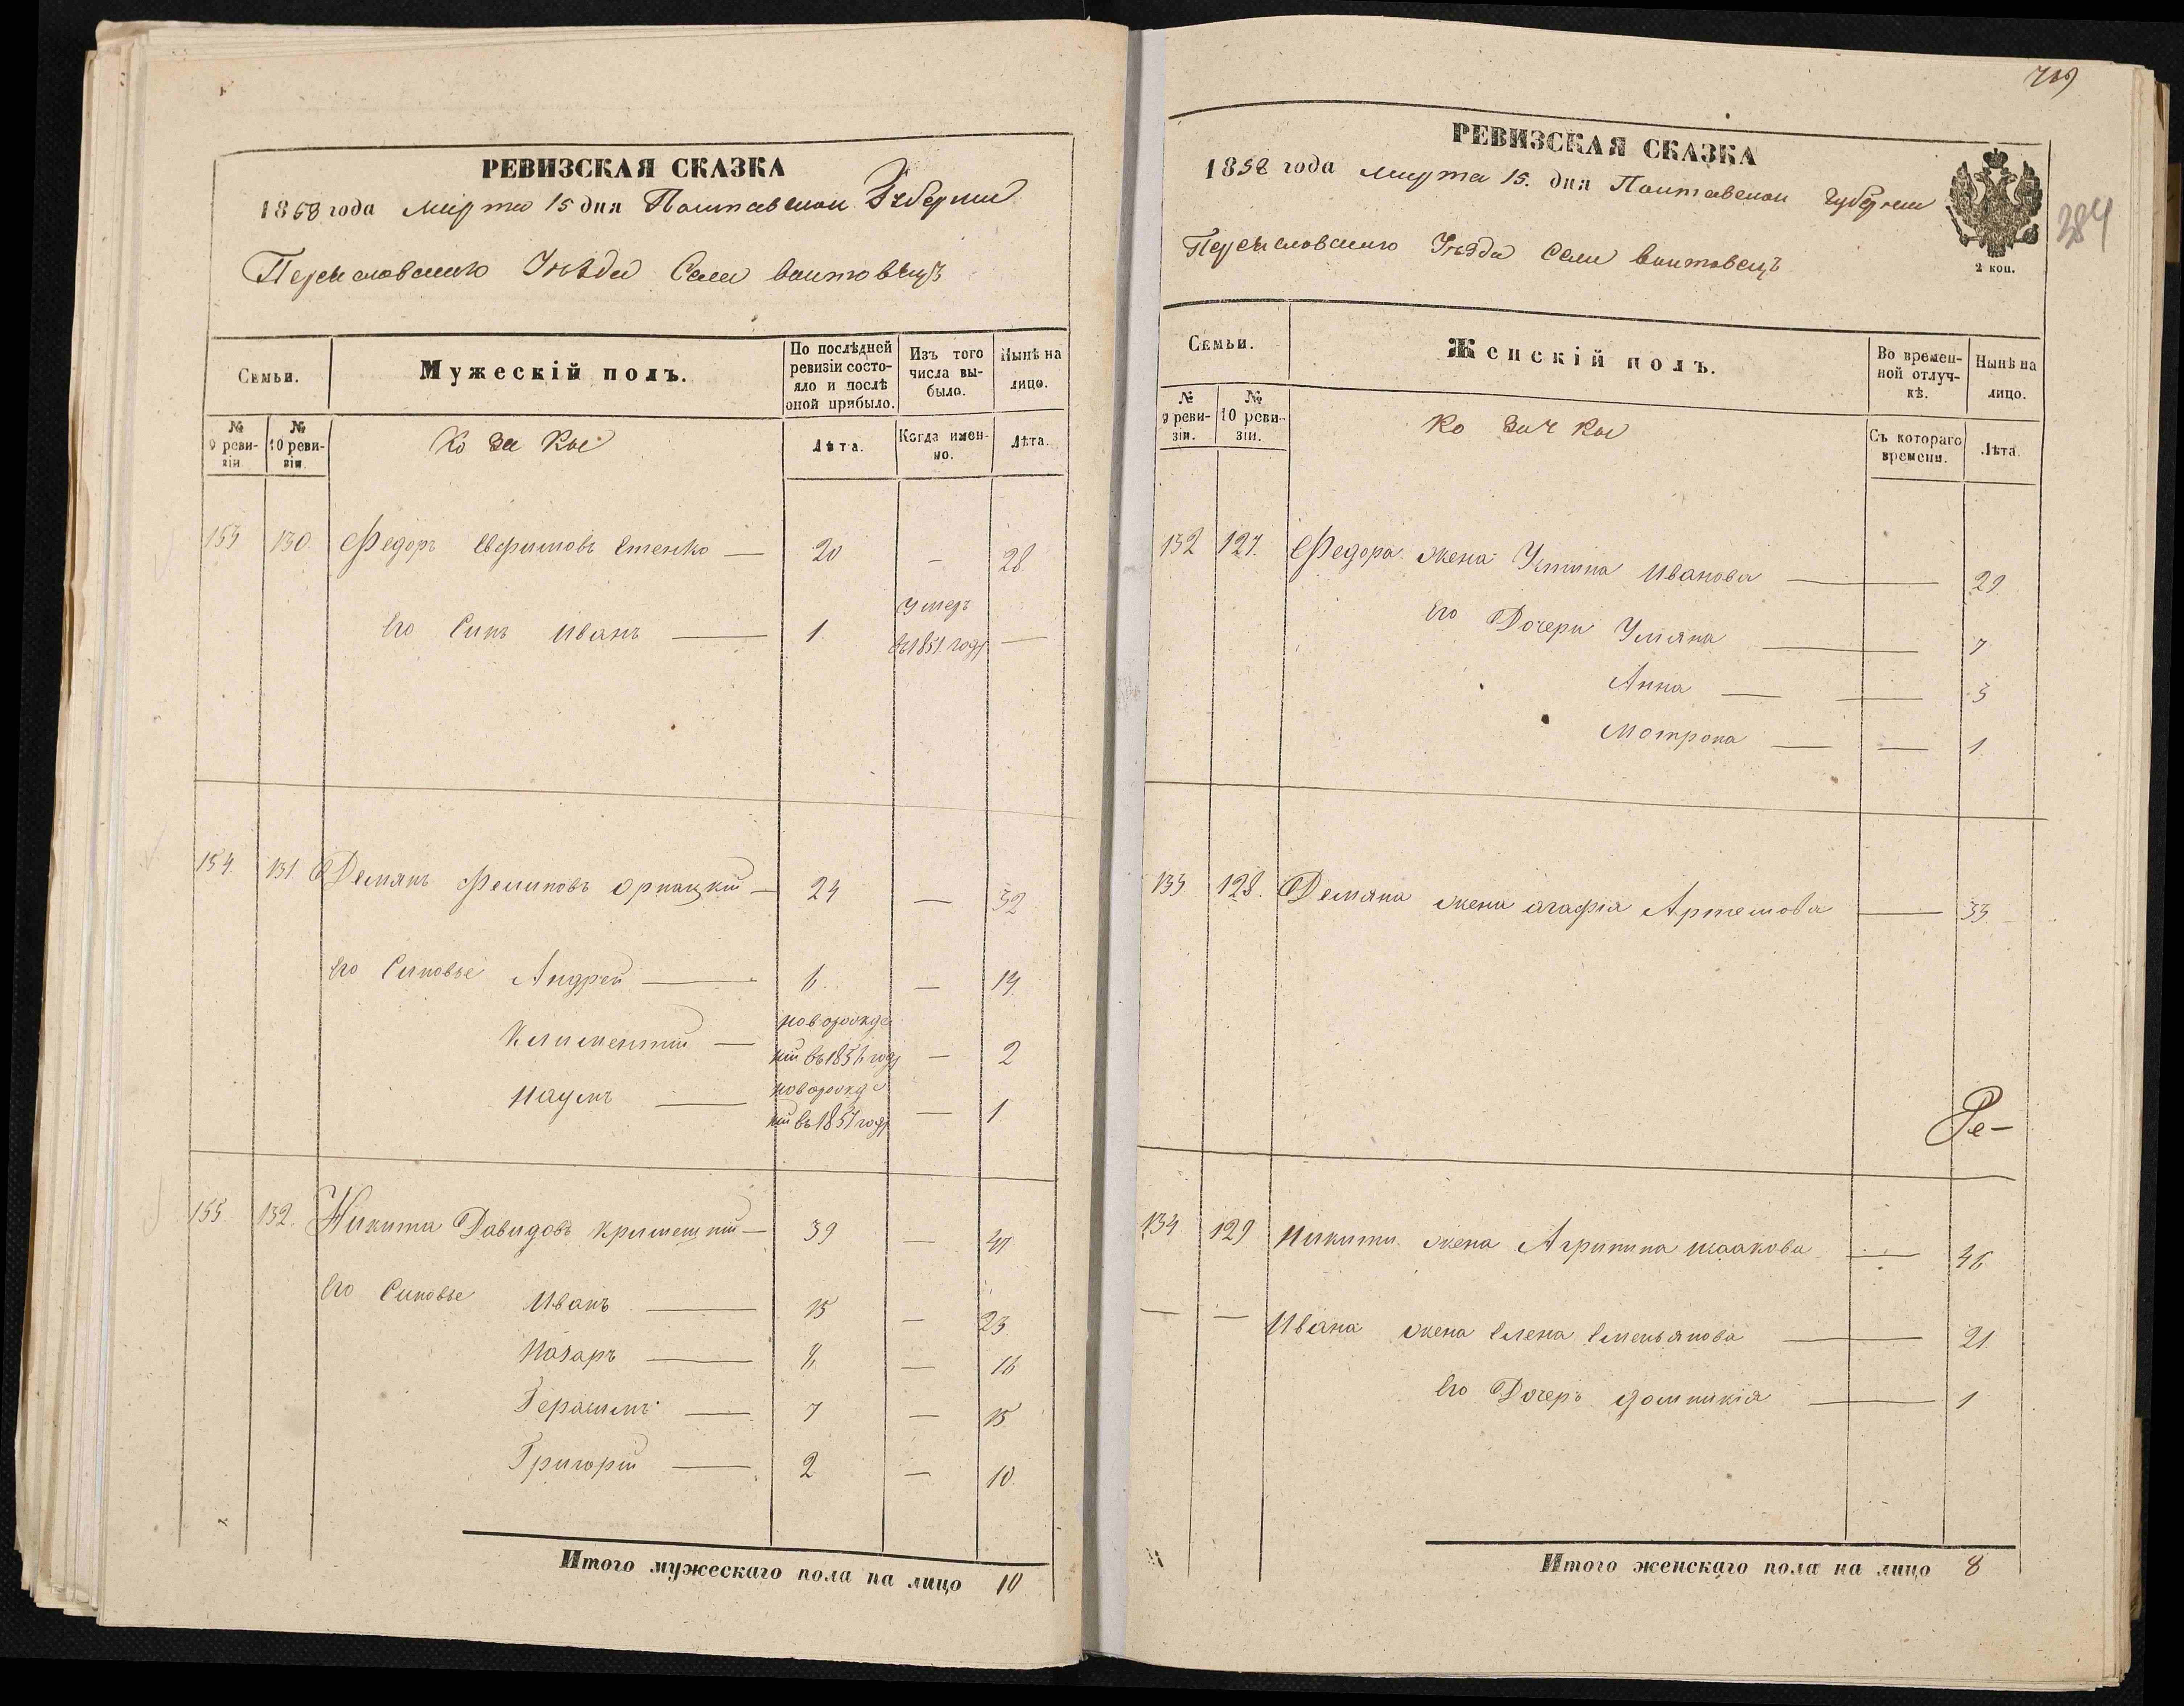 РЕВИЗСКАЯ СКАЗКА
1858 года Марта 15 дня Полтавской Губернии
Переяславского Уѣзда Села Войтовецъ
Семьи.
Мужескій полъ.
По послѣдней ревизіи состояло и послѣ оной прибыло.
Изъ того числа выбыло.
Нынѣ на лицо.
№ 9 ревизіи.
№ 10 ревизіи.
Козаки
Лѣта.
Когда именно.
Лѣта.
153 130. Федоръ Евфимовъ Стенко — 20 — 28.
Его Синъ Иванъ — 1. Умеръ въ 1851. году —
154. 131 Демянъ Филиповъ — 24 — 32.
Его Синовье Андрей — 6. — 14.
Климентій — новорожденій въ 1856 году — 2
Наумъ — новорожденій въ 1857 году — 1.
155. 132. Никита Давидовъ — 39 — 47
Его Синовье Иванъ — 15 — 23.
Назаръ — 8, — 16
Герасимъ — 7 — 15.
Григорій — 2 — 10.
Итого мужескаго пола на лицо 10
284
РЕВИЗСКАЯ СКАЗКА
1858 года Марта 15. дня Полтавской Губернии
Переяславского Уѣзда Села Войтовецъ
2 коп.
Семьи.
Женскій полъ.
Во временной отлучкѣ.
Нынѣ на лицо.
№ 9 ревизіи.
№ 10 ревизіи.
Козачки
Съ котораго времени.
Лѣта.
132 127. Федора жена Устина Иванова — 29
Его Дочери Уляна — 7
Анна — — 3
Мотрона — — 1.
133 128. Демяна жена Агафія Артемова — 33
Ре-
134 129 Никити жена Агрипина Исаакова — 46
— — Ивана жена Елена Емельянова — 21.
Его Дочеръ Домникія — 1
Итого женскаго пола на лицо 8